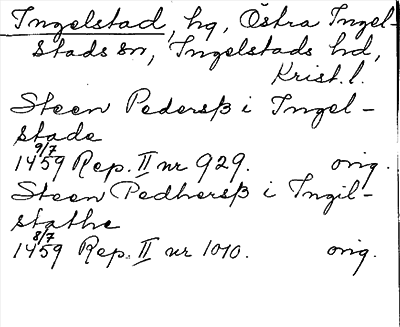 Ingelstad, hg, Östra Ingel-
stads sn, Ingelstads hd,
Krist. l.
Steen Pederß i Ingel-
stade
9/7
1459 Rep. II nr 929. orig.
Steen Pedherß i Ingil-
stathe
8/7
1459 Rep. II nr 1010. orig.